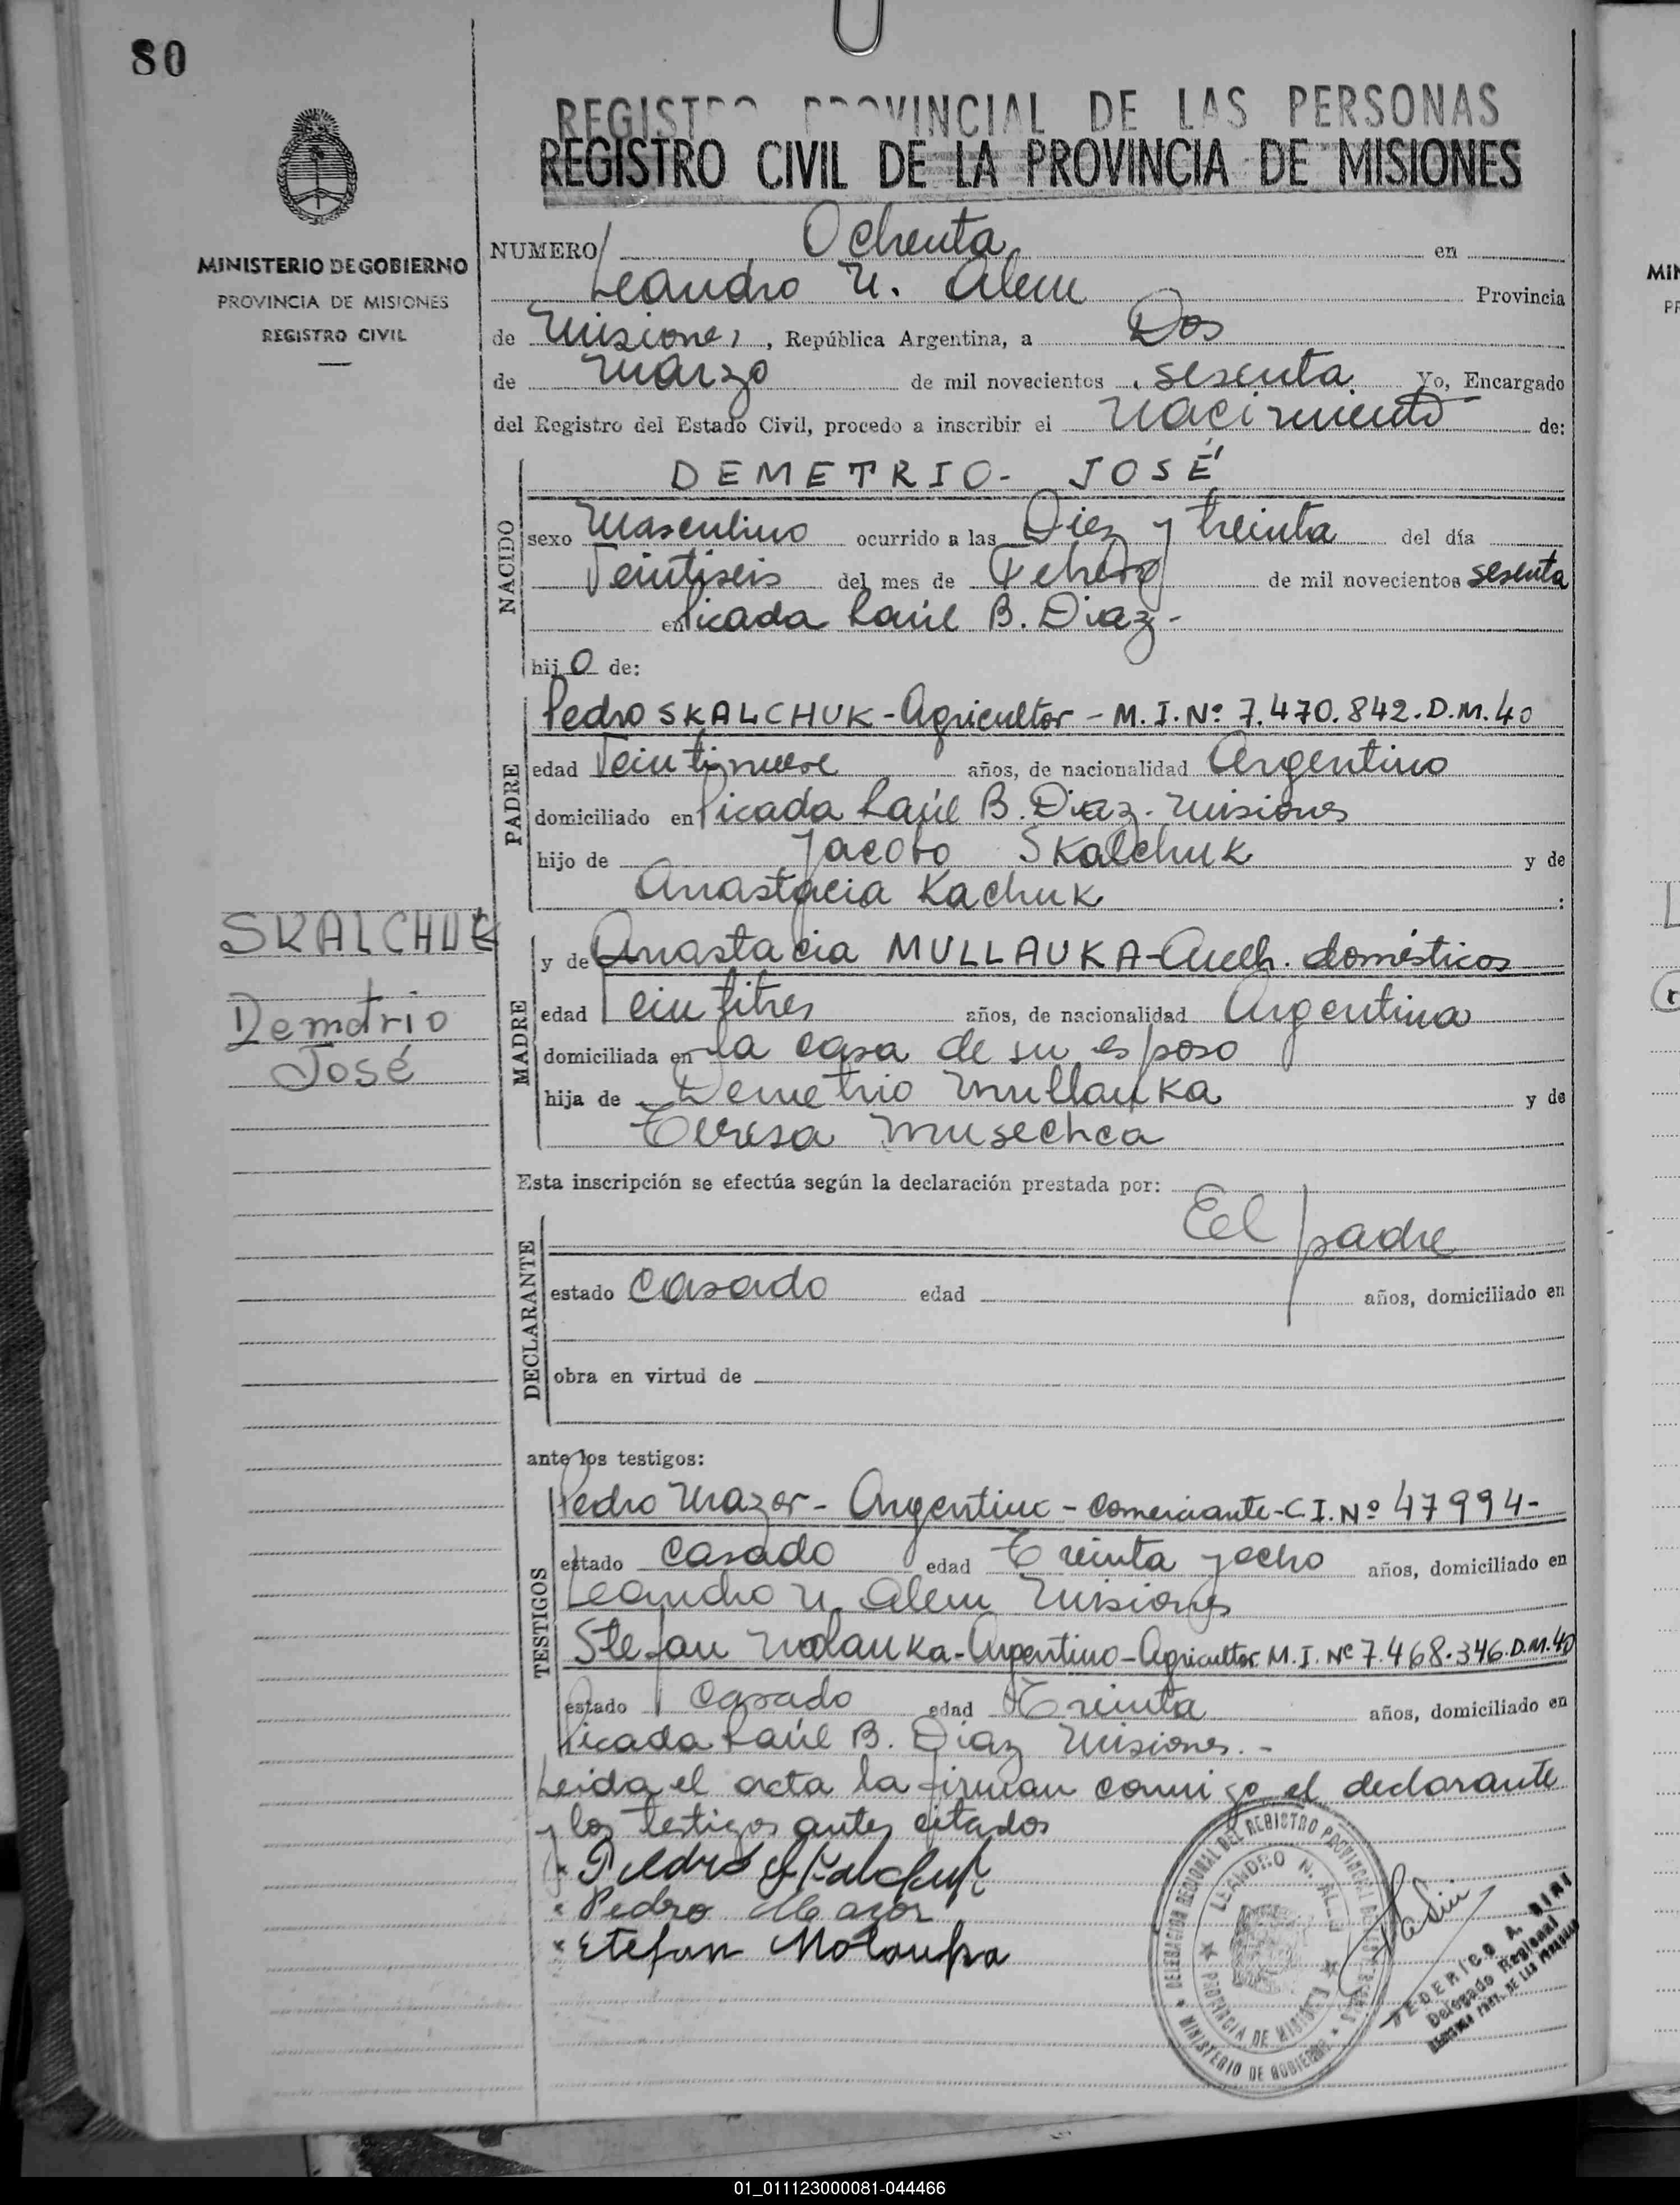 80
REGISTRO PROVINCIAL DE LAS PERSONAS
REGISTRO CIVIL DE LA PROVINCIA DE MISIONES
MINISTERIO DE GOBIERNO
PROVINCIA DE MISIONES
REGISTRO CIVIL
NUMERO Ochenta en
Leandro N. Alem Provincia
de Misiones, República Argentina, a Dos
de Marzo de mil novecientos sesenta Yo, Encargado
del Registro del Estado Civil, procedo a inscribir el Nacimiento de:
NACIDO
DEMETRIO- JOSÉ
sexo Masculino ocurrido a las Diez y treinta del día
Veintiseis del mes de Febrero de mil novecientos sesenta
en Picada Raúl B. Diaz-
hijo de:
PADRE
Pedro SKALCHUK-Agricultor-M.I.Nº 7.470.842.D.M.40
edad Veintinueve años, de nacionalidad Argentino
domiciliado en Picada Raúl B. Diaz. Misiones
hijo de Jacobo Skalchuk y de
Anastacia Kachuk :
SKALCHUK
Demetrio
José
MADRE
y de Anastacia MULLAUKA-Queh. domésticos
edad Veintitres años, de nacionalidad Argentina
domiciliada en la casa de su esposo
hija de Demetrio Mullauka y de
Teresa Musechca
Esta inscripción se efectúa según la declaración prestada por:
DECLARANTE
El padre
estado Casado edad años, domiciliado en
obra en virtud de
ante los testigos:
TESTIGOS
Pedro Mazor- Argentino-Comerciante-C I.Nº 47994-
estado Casado edad Treinta y ocho años, domiciliado en
Leandro N. Alem Misiones
Stefan Molauka-Argentino-Agricultor M.I.Nº 7.468.346.D.M.40
estado Casado edad Treinta años, domiciliado en
Picada Raúl B. Díaz Misiones.-
Leida el acta la firman conmigo el declarante
y los testigos antes citados
Pedro Skalchuk
Pedro Mazor
Stefan Molauka
DELEGACION REGIONAL DEL REGISTRO PROVINCIAL DE LAS PERSONAS
LEANDRO N. ALEM
PROVINCIA DE MISIONES
MINISTERIO DE GOBIERNO
FEDERICO A. BINI
Delegado Regional
REGISTRO PROV. DE LAS PERSONAS
01_011123000081-044466